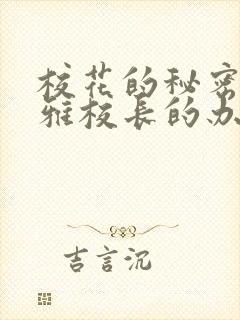 校花的秘密
雅校长的办
吉言沉